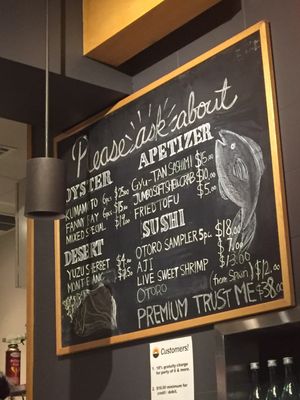 Please ask about
OYSTER
KUMAMOTO 6pcs $25.00
FANNY BAY 6pcs $15.00
MIXED SPECIAL
DESERT
YUZU SHERBET $4.00
MONT BLANC
APPETIZER
GYU-TAN SASHIMI $15.00
JUMBO SOFT SHELL CRAB $10.00
FRIED TOFU $5.00
SUSHI
OTORO SAMPLER 5pc. $18.00
AJI $7.00
LIVE SWEET SHRIMP $13.00
OTORO (from Spain) $12.00
PREMIUM TRUST ME $38.00
Customers!
* 18% gratuity charge for
party of 6 & more.
$10.00 minimum for
credit / debit.